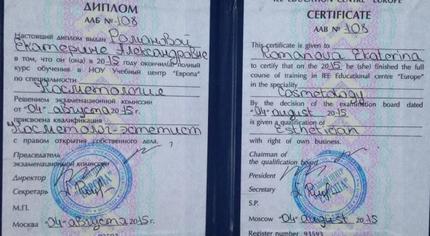 ДИПЛОМ
ААБ № 108
Настоящий диплом выдан Романовой
Екатерине Александровне
в том, что он (она) в 2015 году окончил(а) полный
курс обучения в НОУ Учебный центр "Европа"
по специальности
Косметология
Решением экзаменационной комиссии
от «04» августа 2015 г.
присвоена квалификация
Косметолог-эстетист
с правом открытия собственного дела.
Председатель
экзаменационной комиссии
Директор
Секретарь
М.П.
Москва «04» августа 2015 г.
IEE EDUCATION CENTRE EUROPE
CERTIFICATE
AAB № 108
This certificate is given to
Romanova Ekaterina
to certify that on the 2015 he (she) finished the full
course of training in IEE Educational centre "Europe"
in the speciality
Cosmetology
By the decision of the examination board dated
«04» august 2015
is given a qualification of
Esthetician
with right of own business.
Chairman of
the qualification board
President
Secretary
S.P.
Moscow «04» august 2015.
Register number 93593